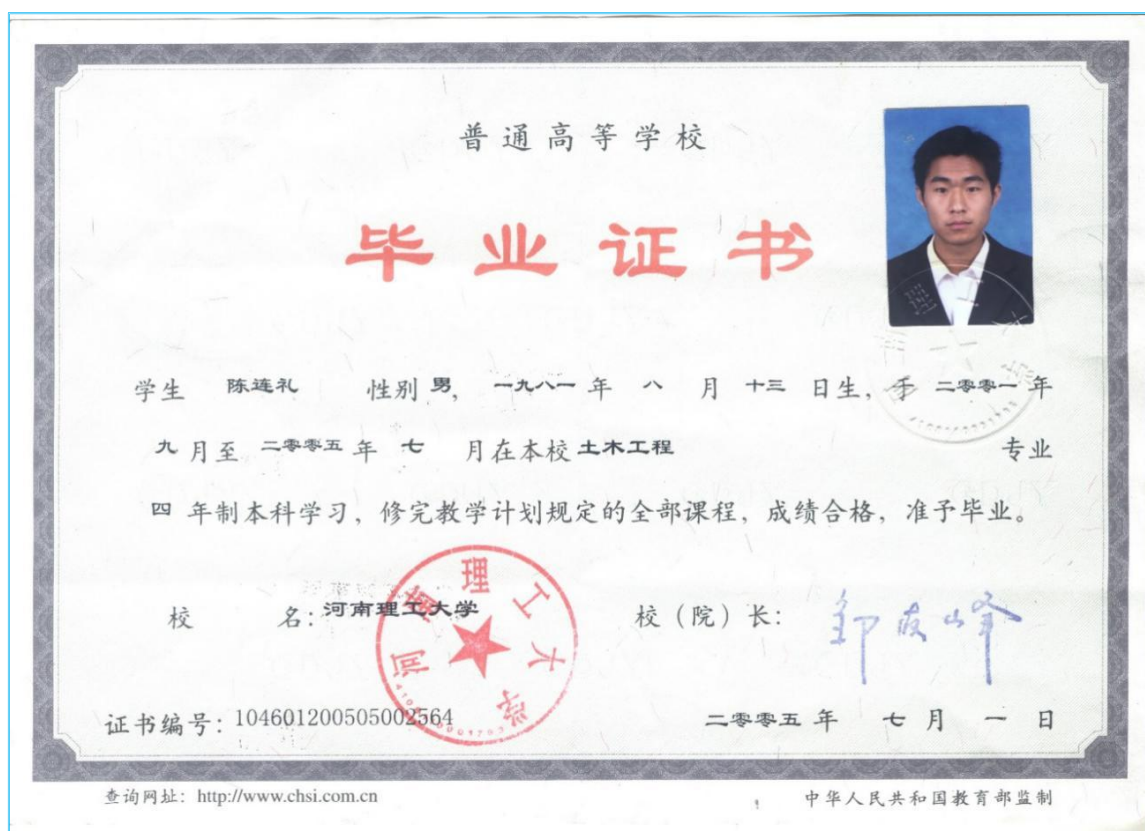 普通高等学校
毕业证书
学生 陈连礼 性别 男，一九八一 年 八 月 十三 日生，于 二零零一 年
九 月至 二零零五 年 七 月在本校 土木工程 专业
四 年制本科学习，修完教学计划规定的全部课程，成绩合格，准予毕业。
校 名：河南理工大学 校（院）长：
河南理工大学
证书编号：104601200505002564 二零零五 年 七 月 一 日
查询网址：http://www.chsi.com.cn 中华人民共和国教育部监制